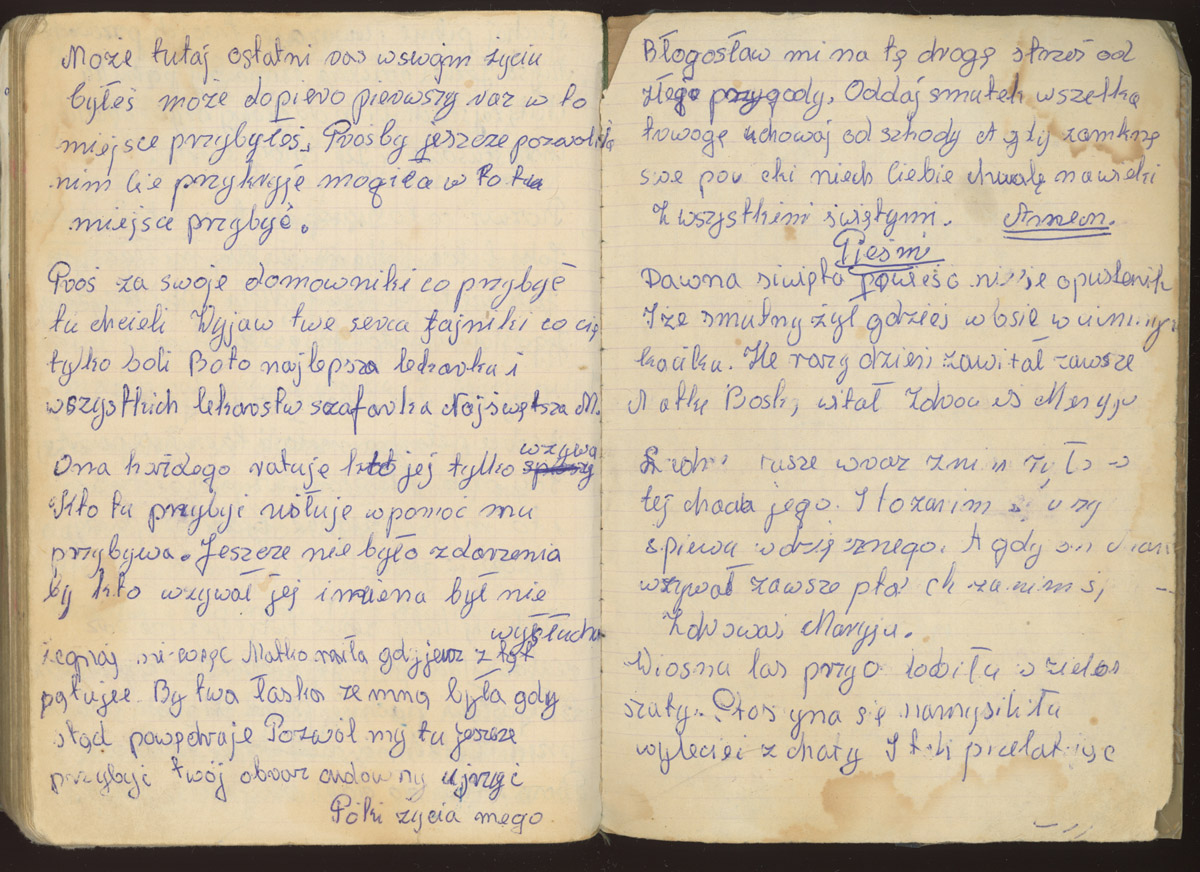 Może tutaj ostatni ras w swojm życiu
byłeś może dopiero pierwszy raz w to
miejsce przybyłoś. Prośby jeszcze pozwol
nim Cie przykryję mogiła w to
miejsce przybyć.
Proś za swoje domowniki co przybyć
tu chcieli Wyjaw twe serca tajniki co cię
tylko boli Bo to najlepsza lekarka i
wszystkich lekarstw szafarka Najświętsza M.
Ona każdego ratuję kto jej tylko wzywa
Kto tu przybyć usłuje w pomoc mu
przybywa. Jeszcze nie było zdarzenia
by kto wzywał jej imiena był nie
wysłucha
żegnaj Matko miła gdy już z tąt
pątujee. By twa łaska ze mną była gdy
stąd powędraje Pozwól mj tu jeszcze
przybyć twój obraz cudowny ujrzyć
Póki życia mego
Błogosław mi na tę drogę strześ od
złego przygody, Oddaj smutek wszelką
towogę uchowaj od szkody A gdy zamknę
swe niech Ciebie chwalę na wieki
Z wszystkimi świętymi. Amen.
Pieśni
Dawna święta powieść niesie o pustenik
Iże smutny żył gdzieś w lesie w
kacika. Ile razy dzień zawitał zawsze
Matkę Bosk, witał Zdrowaś Maryjo
wraz z nim
tej chacie jego. I
śpiewu wdzięcznego. A gdy on
wzywał zawsze za nim
Zdrowaś Maryju.
Wiosna las zielone
szaty. Ptaszyna się namyśliła
wyleciei z chaty I tak